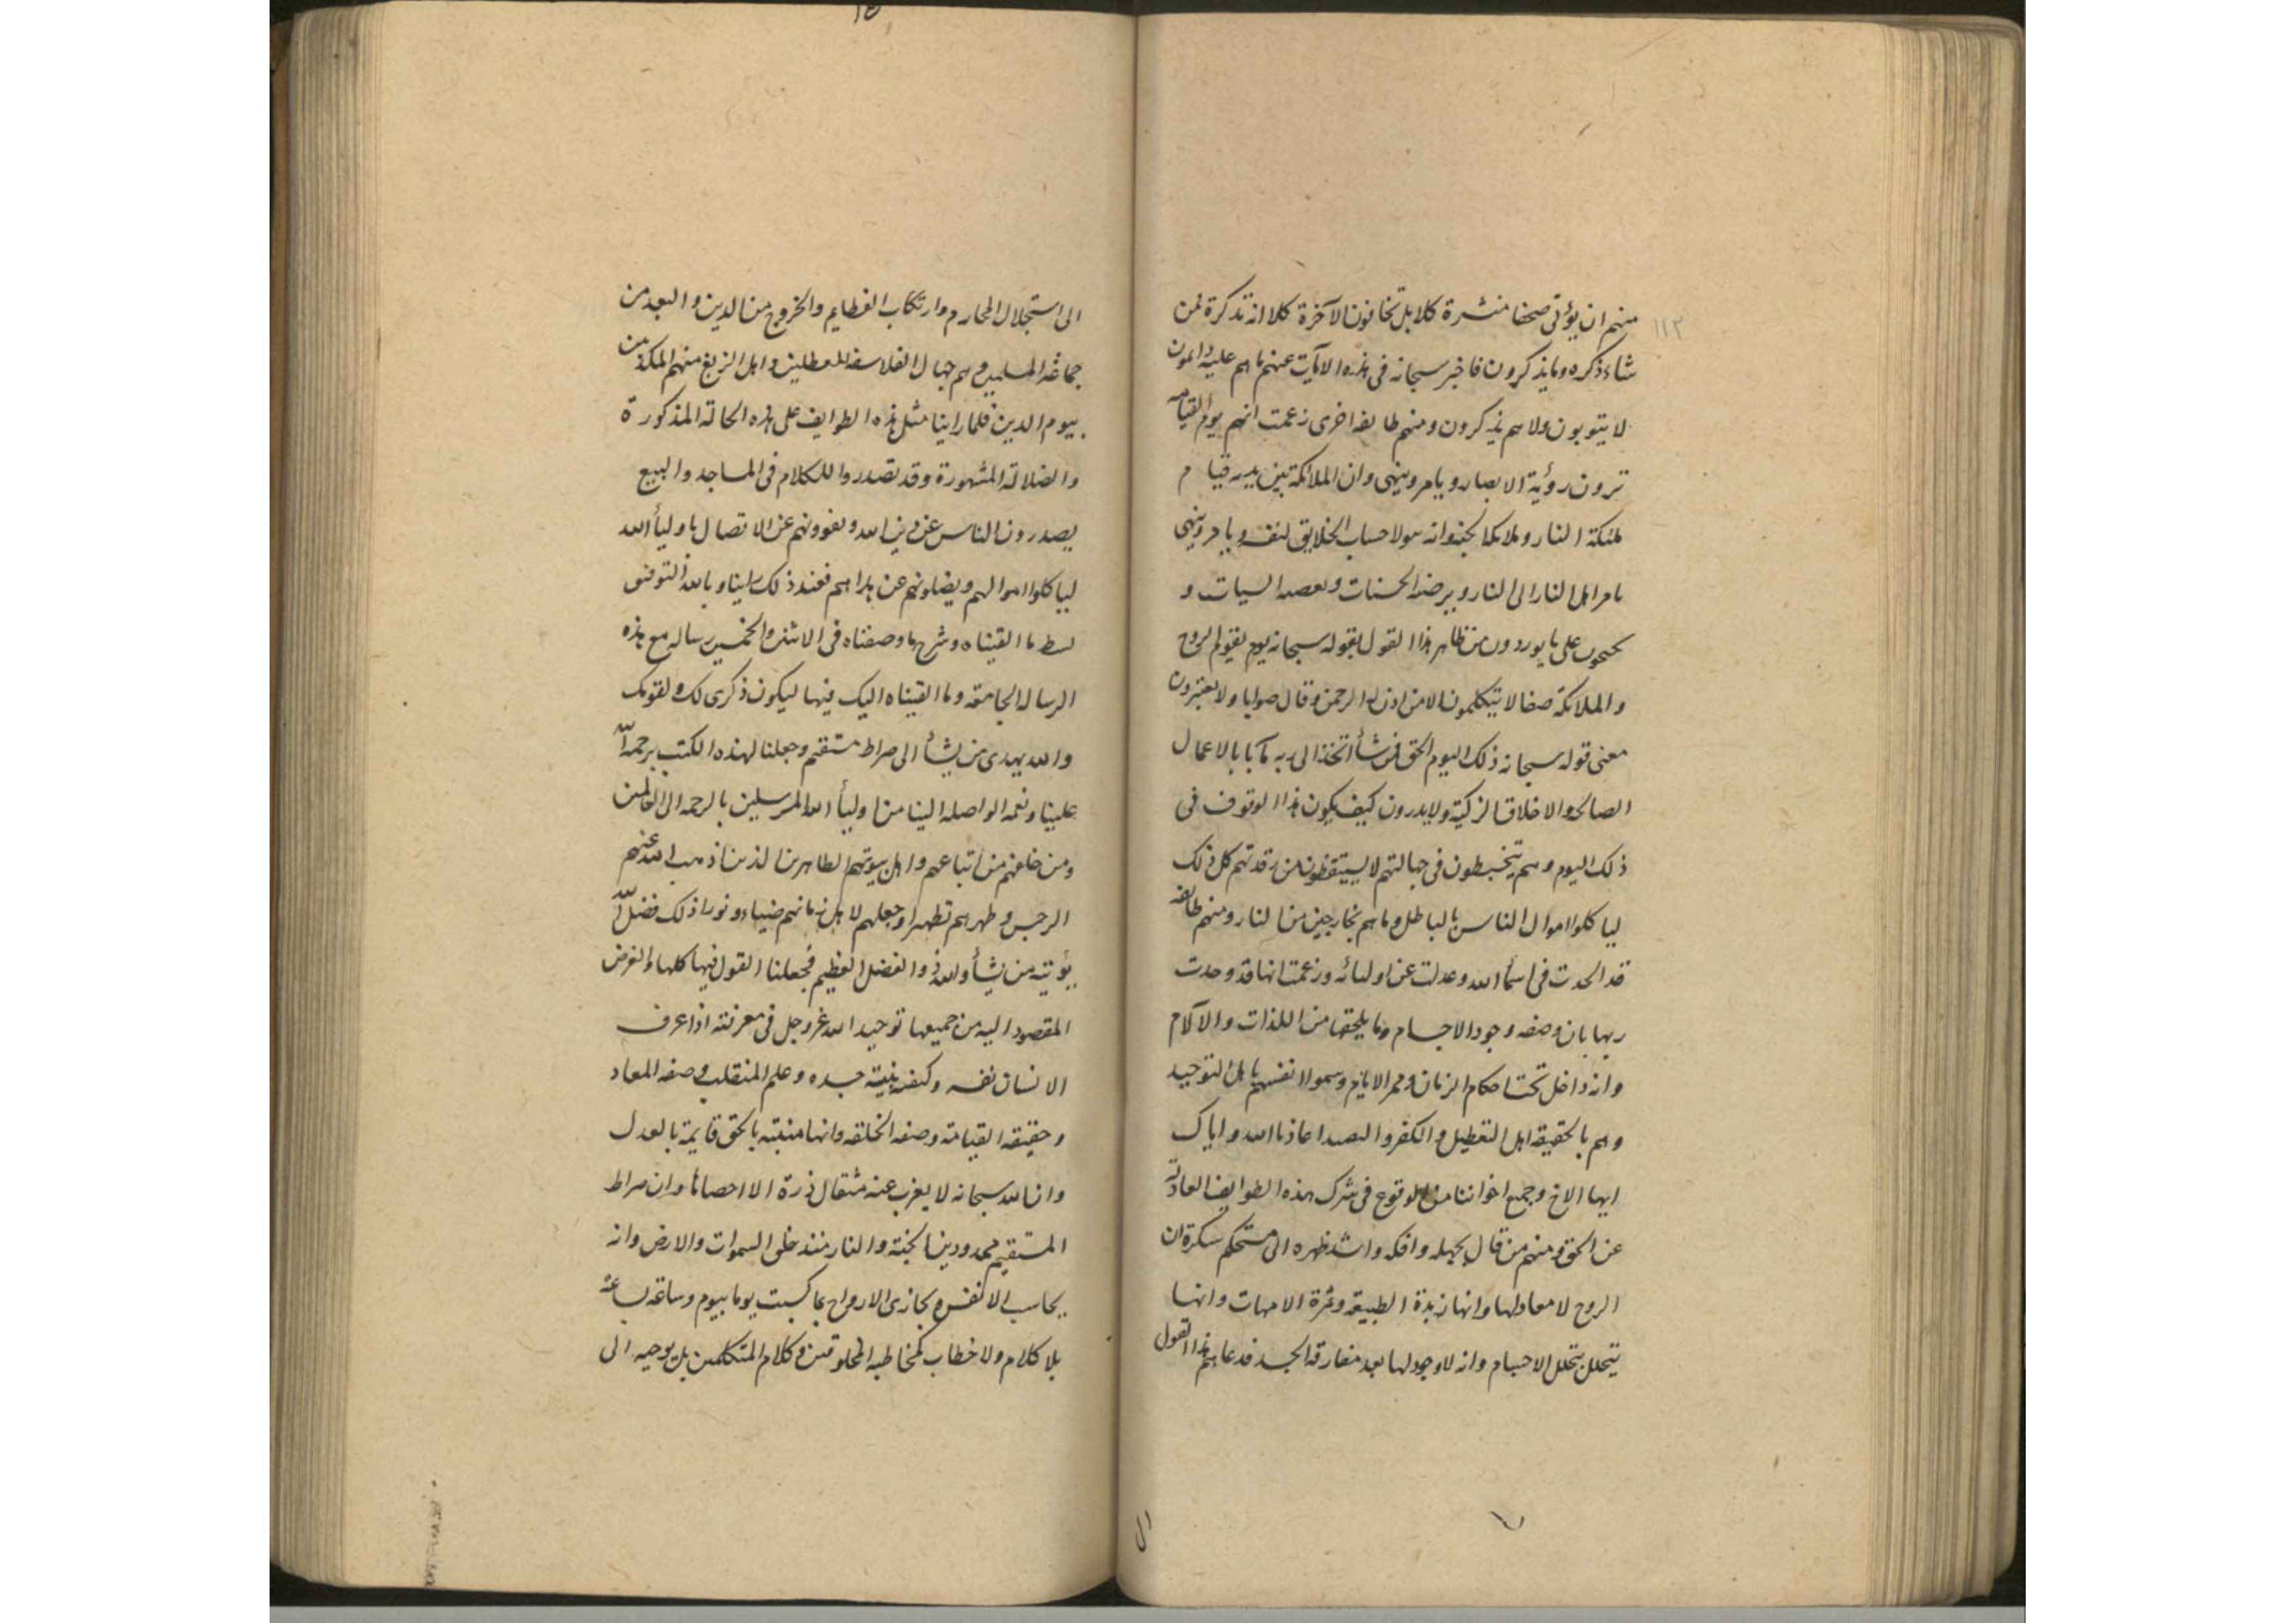 ١١٣
منهم ان يؤتى صحفا منشرة كلا بل تخافون الآخرة كلا انه تذكرة لمن
شاء ذكره وما يذكرون فاخبر سبحانه فى هذه الآيات عنهم ما هم عليه دايمون
لا يتوبون ولا هم يذكرون ومنهم طايفه اخرى زعمت انهم يوم القيامه
ترون رؤية الابصار ويامر وينهى وان الملائكة بين يديه قيام
ملئكة النار وملائكة الجنه وانه يتولا حساب الخلايق لنفسه ويامر وينهى
يامر اهل النار الى النار و الحسنات السيات و
على ما يوردون من تظاهر هذا القول بقوله سبحانه يوم يقوم الروح
والملائكة صفا لا يتكلمون الا من اذن له الرحمن وقال صوابا ولا يعتبرون
معنى قوله سبحانه ذلك اليوم الحق فمن شأ اتخذ الى ربه مآبا بالاعمال
الصالحه والاخلاق الزكية ولا يدرون كيف يكون هذا الوقوف فى
ذلك اليوم وهم يتخبطون فى جهالتهم لا يستيقظون من رقدتهم كل ذلك
لياكلوا اموال الناس بالباطل وما هم بخارجين من النار ومنهم طايفه
قد الحدت فى اسمأ الله وعدلت عن اوليائه وزعمت انها قد وحدت
ربها بان وصفه وجود الاجسام وما يلحقها من اللذات والآلام
وانه داخل تحت احكام الزمان وممر الايام وسموا انفسهم باهل التوحيد
وهم بالحقيقه اهل التعطيل والكفر و اعاذنا الله واياك
ايها الاخ وجميع اخواننا من الوقوع فى شرك هذه الطوايف العادلة
عن الحق ومنهم من قال بجهله وافكه واسند ظهره الى مستحكم سكرة ان
الروح لا معاد لها وانها زبدة الطبيعة وثمرة الامهات وانها
يتحلل بتحلل الاجسام وانه لا وجود لها بعد مفارقة الجسد فدعاهم هذا القول
الى استحلال المحارم وارتكاب العظايم والخروج من الدين والبعد من
جماعة المسلمين وهم جهال الفلاسفه المعطلين واهل الزيغ منهم المكذبين
بيوم الدين فلما راينا مثل هذه الطوايف على هذه الحالة المذكورة
والضلالة المشهورة وقد تصدروا للكلام فى المساجد والبيع
يصدرون الناس عن دين الله ويغوونهم عن الاتصال باوليأ الله
لياكلوا اموالهم ويضلونهم عن هداهم فعند ذلك راينا وبالله التوفيق
بسط ما القيناه وشرح ما وصفناه فى الاثنين والخمسين رساله مع هذه
الرساله الجامعة وما القيناه اليك فيها ليكون ذكرى لك ولقومك
والله يهدى من يشأ الى صراط مستقيم وجعلنا لهذه الكتب برحمة الله
علينا ونعمه الواصله الينا من اوليأ الله المرسلين بالرحمه الى العالمين
ومن خلفهم من اتباعهم واهل بيوتهم الطاهرين الذين اذهب الله عنهم
الرجس وطهرهم تطهيرا وجعلهم لاهل زمانهم ضياء ونورا ذلك فضل الله
يؤتيه من يشأ والله ذو الفضل العظيم فجعلنا القول فيها كلها والغرض
المقصود اليه من جميعها توحيد الله عز وجل فى معرفته اذا عرف
الانسان نفسه وكيف بنية جسده وعلم المنقلب وصفه المعاد
وحقيقه القيامة وصفه الخلقه وانها مبنية بالحق قايمة بالعدل
وان الله سبحانه لا يعزب عنه مثقال ذرة الا احصاها وان صراط
المستقيم ممدود بين الجنة والنار منذ خلق السموات والارض وانه
يحاسب الانفس ويجازى الارواح بما كسبت يوما بيوم وساعة بساعة
بلا كلام ولا خطاب كمخاطبه المخلوقين وكلام المتكلمين بل يوحيه الى